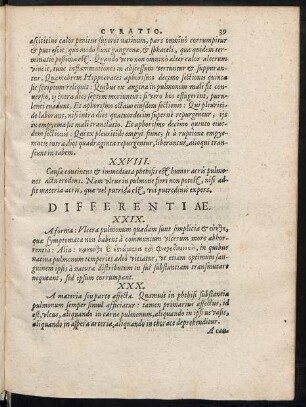 CVRATIO. 39
aſcititius calor penitus ſuperet natiuum, pars omnino corrumpitur
& putreſcit, quo modo fiunt gangrenæ, & ſphaceli, quæ quidem ter-
minatio peſſima eſt. Quando vero non omnino alter calor alterum
vincit, tunc inflammationes in abſceſſum vertuntur & ſuppuran-
tur. Quamobrem Hippocrates aphoriſmo decimo ſectionis quintæ
ſic ſcriptum reliquit: Quibus ex angina in pulmonem malũ ſit con-
uerſio, ij intra dies ſeptem moriuntur: ſi vero hos effugerint, puru-
lenti euadunt. Et aphoriſmo octauo eiuſdem ſectionis: Qui pleuriti-
de laborant, niſi intra dies quatuordecim ſuperne repurgentur, ijs
in empyema fit mali tranſlatio. Et aphoriſmo decimo quinto eiuſ-
dem ſectionis: Qui ex pleuritide empyi fiunt, ſi à ruptione empye-
matis intra dies quadraginta repurgentur, liberantur, alioqui tran-
ſeunt in tabem.
XXVIII.
Cauſa continens & immediata phthiſis eſt humor acris pulmo-
nes actu erodens. Nam vlcus in pulmone fieri non poteſt, niſi ad-
ſit materia acris, quæ vel putrida eſt, vel putredinis expers.
DIFFERENTIAE.
XXIX.
A forma: Vlcera pulmonum quædam ſunt ſimplicia &
quæ ſymptomata non habent à communium vlcerum more abhor-
rentia: Alia in quibus
natiua pulmonum temperies adeo vitiatur, vt etiam optimum ſan-
guinem ipſis à natura diſtributum in ſui ſubſtantiam tranſmutare
nequeant, ſed ipſum corrumpant.
XXX.
A materia ſiu parte affecta. Quamuis in phthiſi ſubſtantia
pulmonum ſemper ſimul afficiatur: tamen primarius affectus, id
eſt, vlcus, aliquando in carne pulmonum, aliquando in ipſius vaſis,
aliquando in aſpera arteria, aliquando in thorace deprehenditur.
A cau-